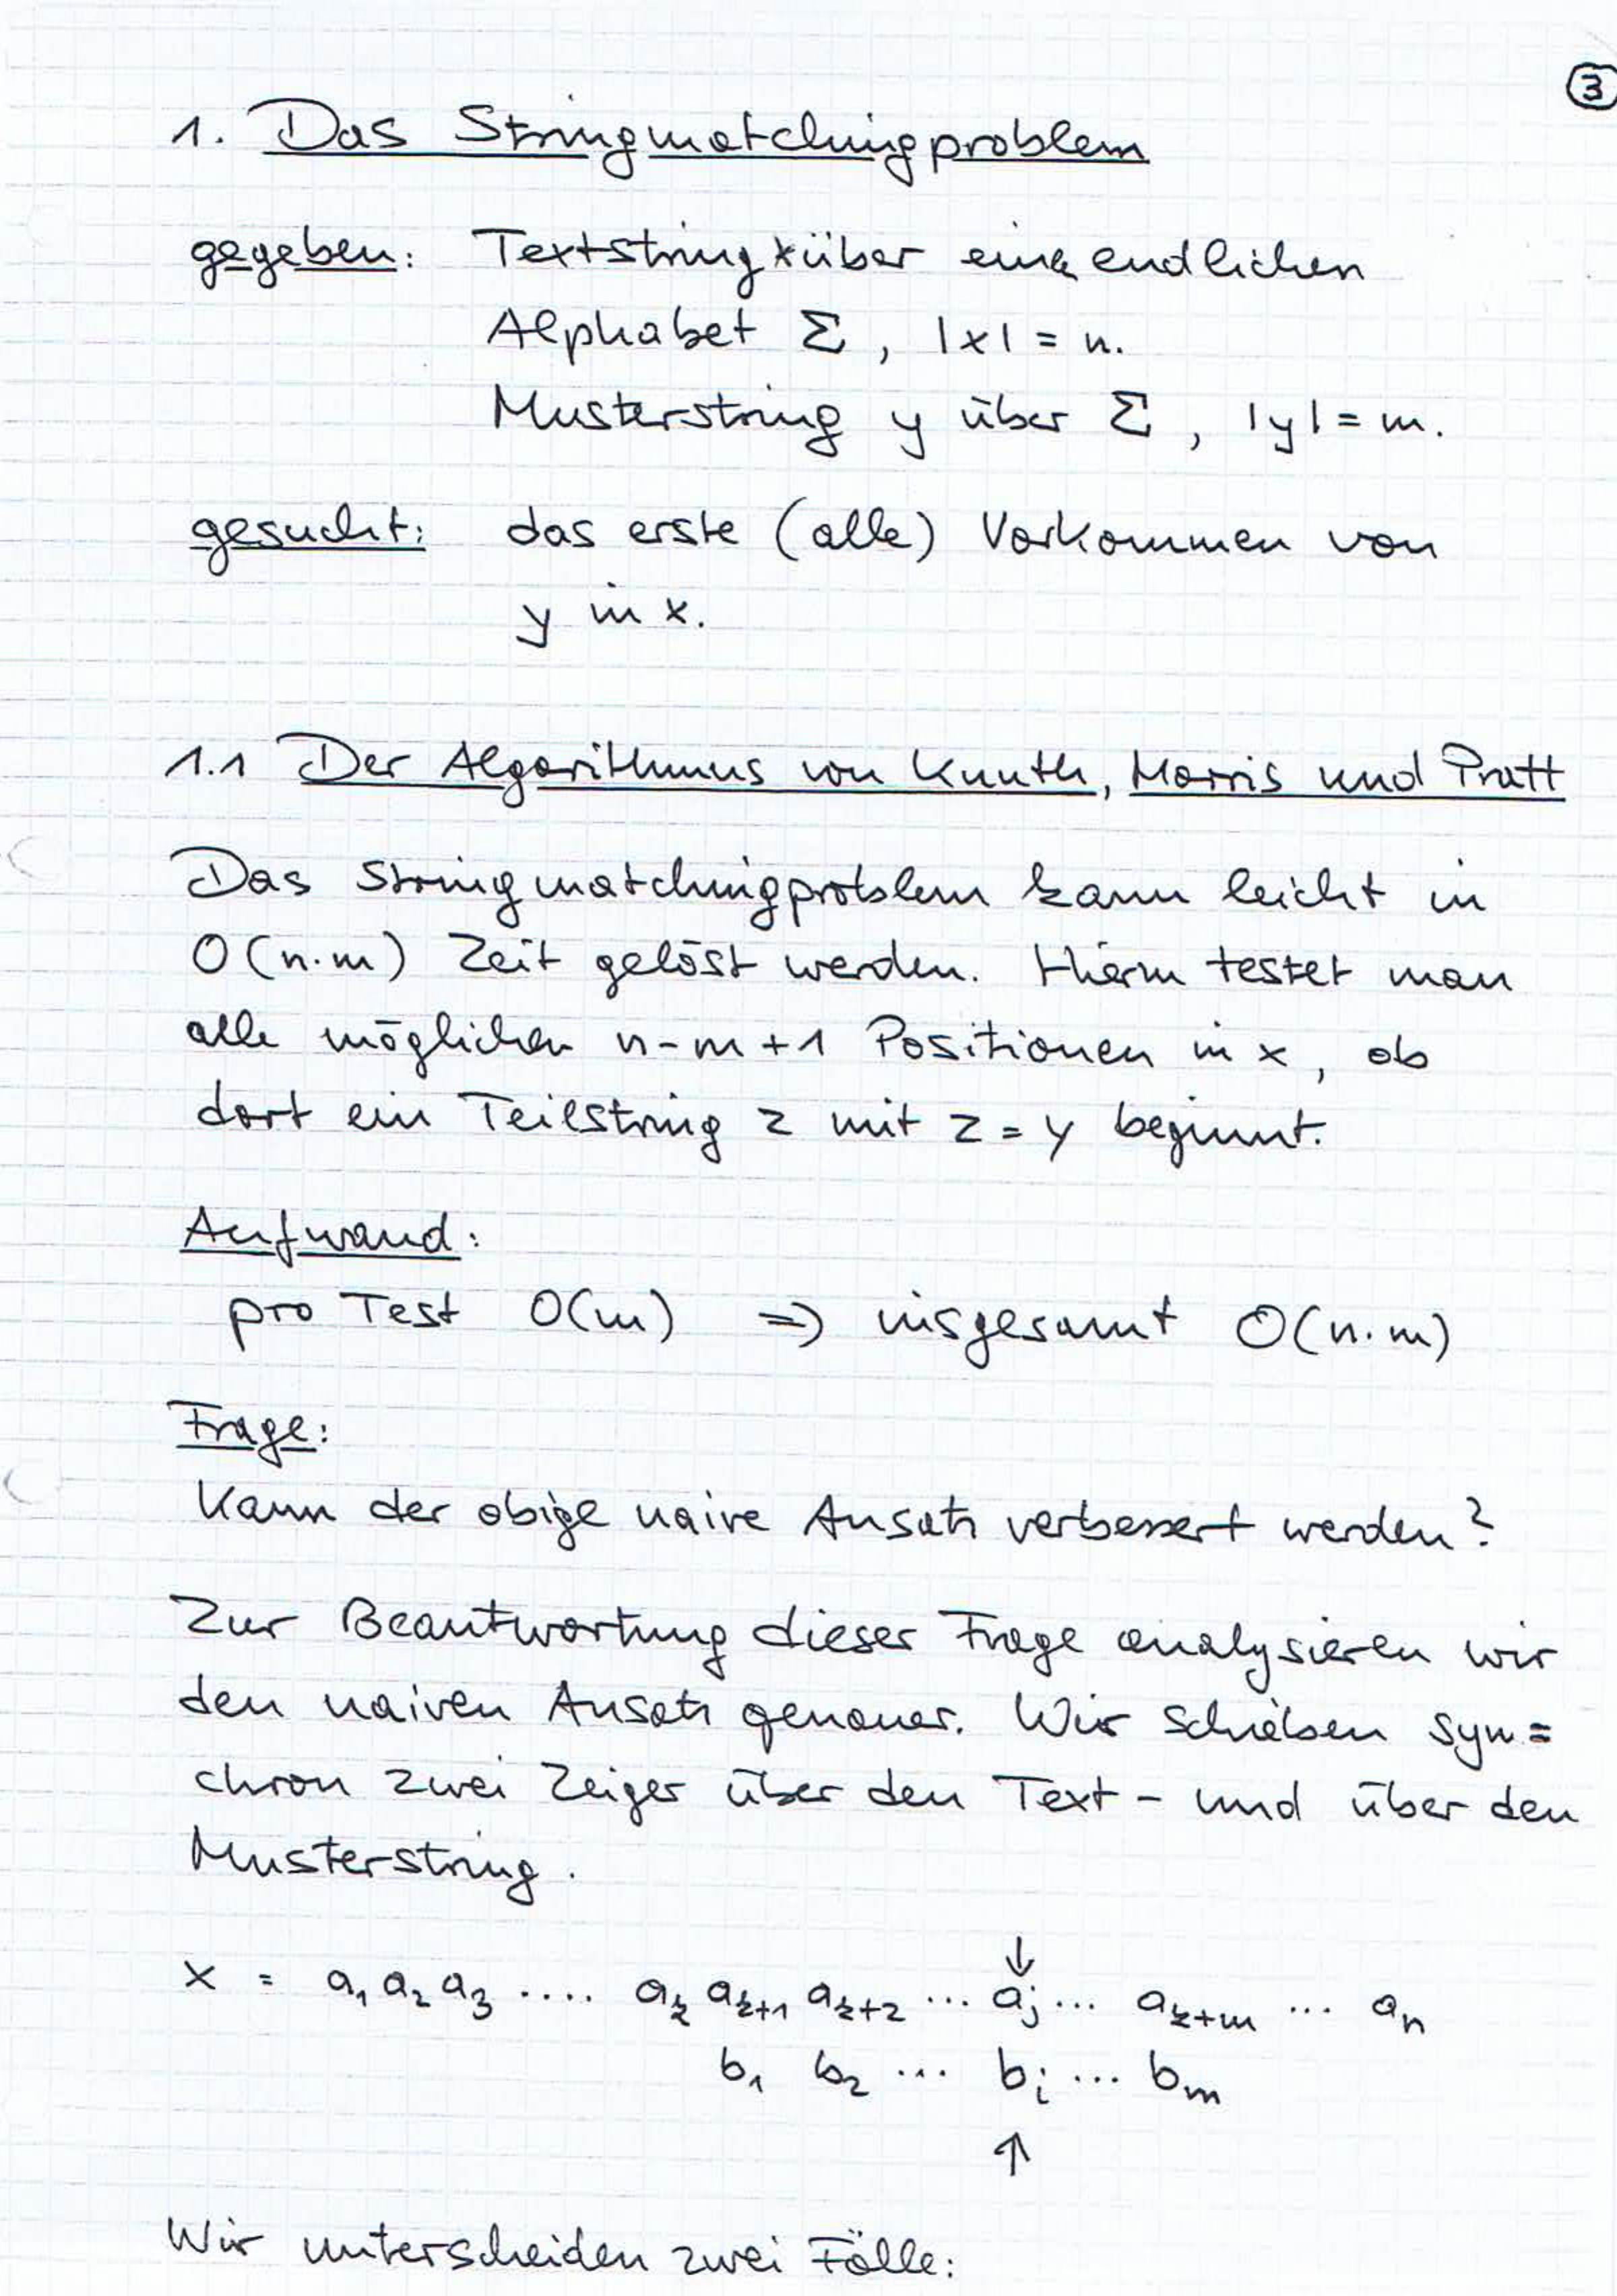 3
1. Das Stringmatchingproblem
gegeben: Textstring x über einem endlichen
Alphabet Σ, |x| = n.
Musterstring y über Σ, |y| = m.
gesucht: das erste (alle) Vorkommen von
y in x.
1.1 Der Algorithmus von Knuth, Morris und Pratt
Das Stringmatchingproblem kann leicht in
O(n·m) Zeit gelöst werden. Hierin testet man
alle möglichen n-m+1 Positionen in x, ob
dort ein Teilstring z mit z = y beginnt.
Aufwand:
pro Test O(m) ⇒ insgesamt O(n·m)
Frage:
Kann der obige naive Ansatz verbessert werden?
Zur Beantwortung dieser Frage analysieren wir
den naiven Ansatz genauer. Wir schieben syn=
chron zwei Zeiger über den Text- und über den
Musterstring.
↓
x = a₁ a₂ a₃ .... aₖ aₖ₊₁ aₖ₊₂ ... aⱼ ... aₖ₊ₘ ... aₙ
b₁ b₂ ... bᵢ ... bₘ
↑
Wir unterscheiden zwei Fälle: